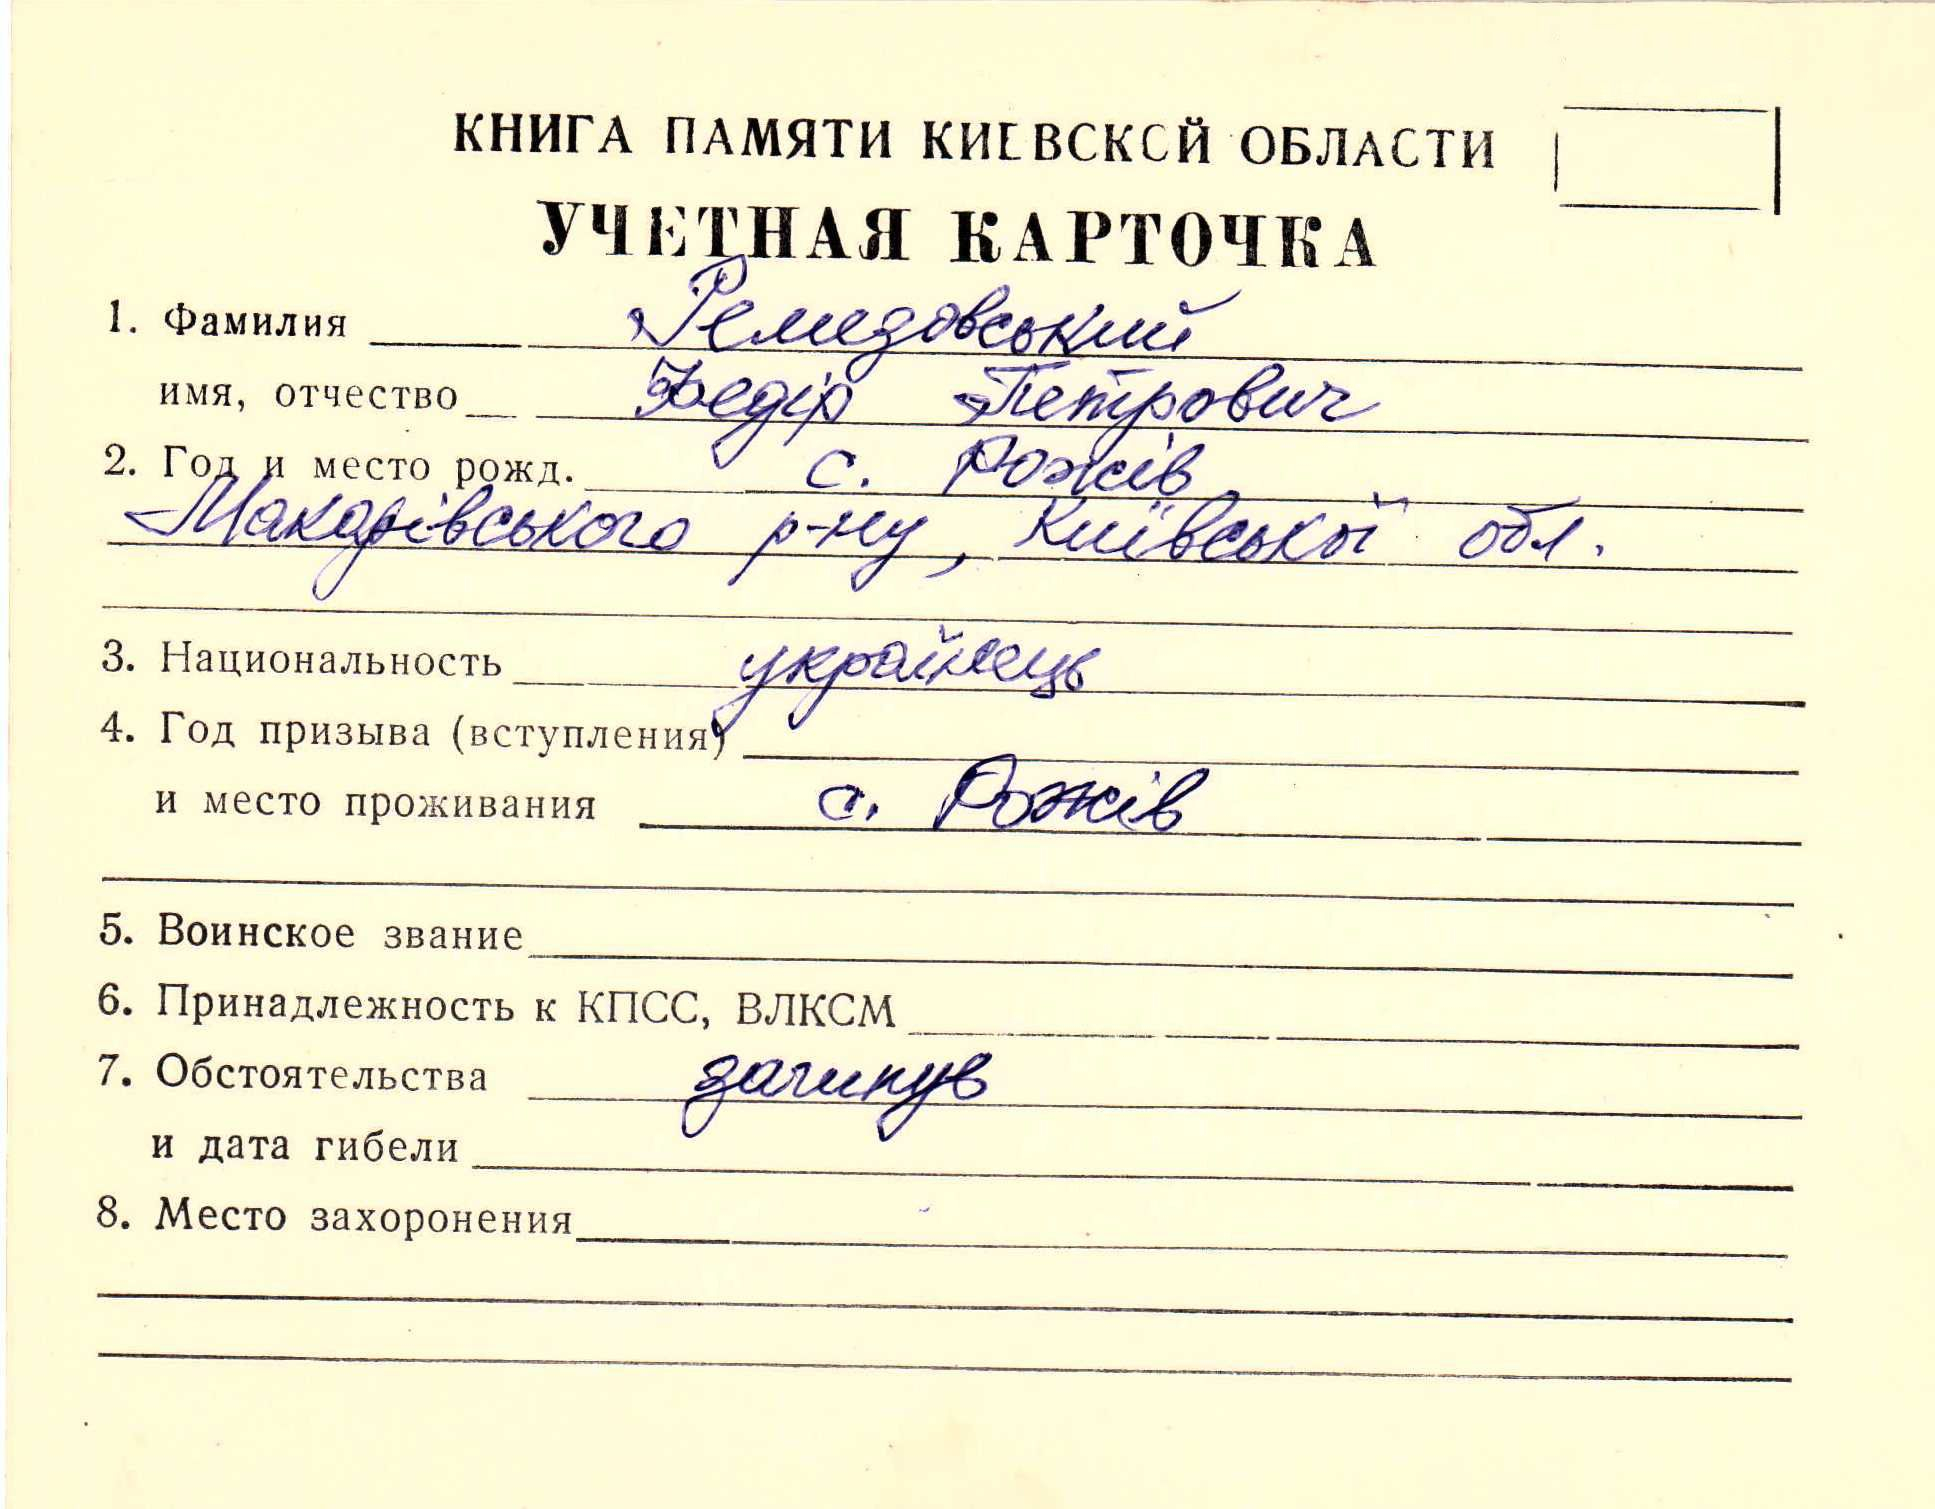 КНИГА ПАМЯТИ КИЕВСКОЙ ОБЛАСТИ
УЧЕТНАЯ КАРТОЧКА
1. Фамилия Ремезовський
имя, отчество Федір Петрович
2. Год и место рожд. с. Рожів
Макарівського р-ну, Київської обл.
3. Национальность українець
4. Год призыва (вступления)
и место проживания с. Рожів
5. Воинское звание
6. Принадлежность к КПСС, ВЛКСМ
7. Обстоятельства загинув
и дата гибели
8. Место захоронения